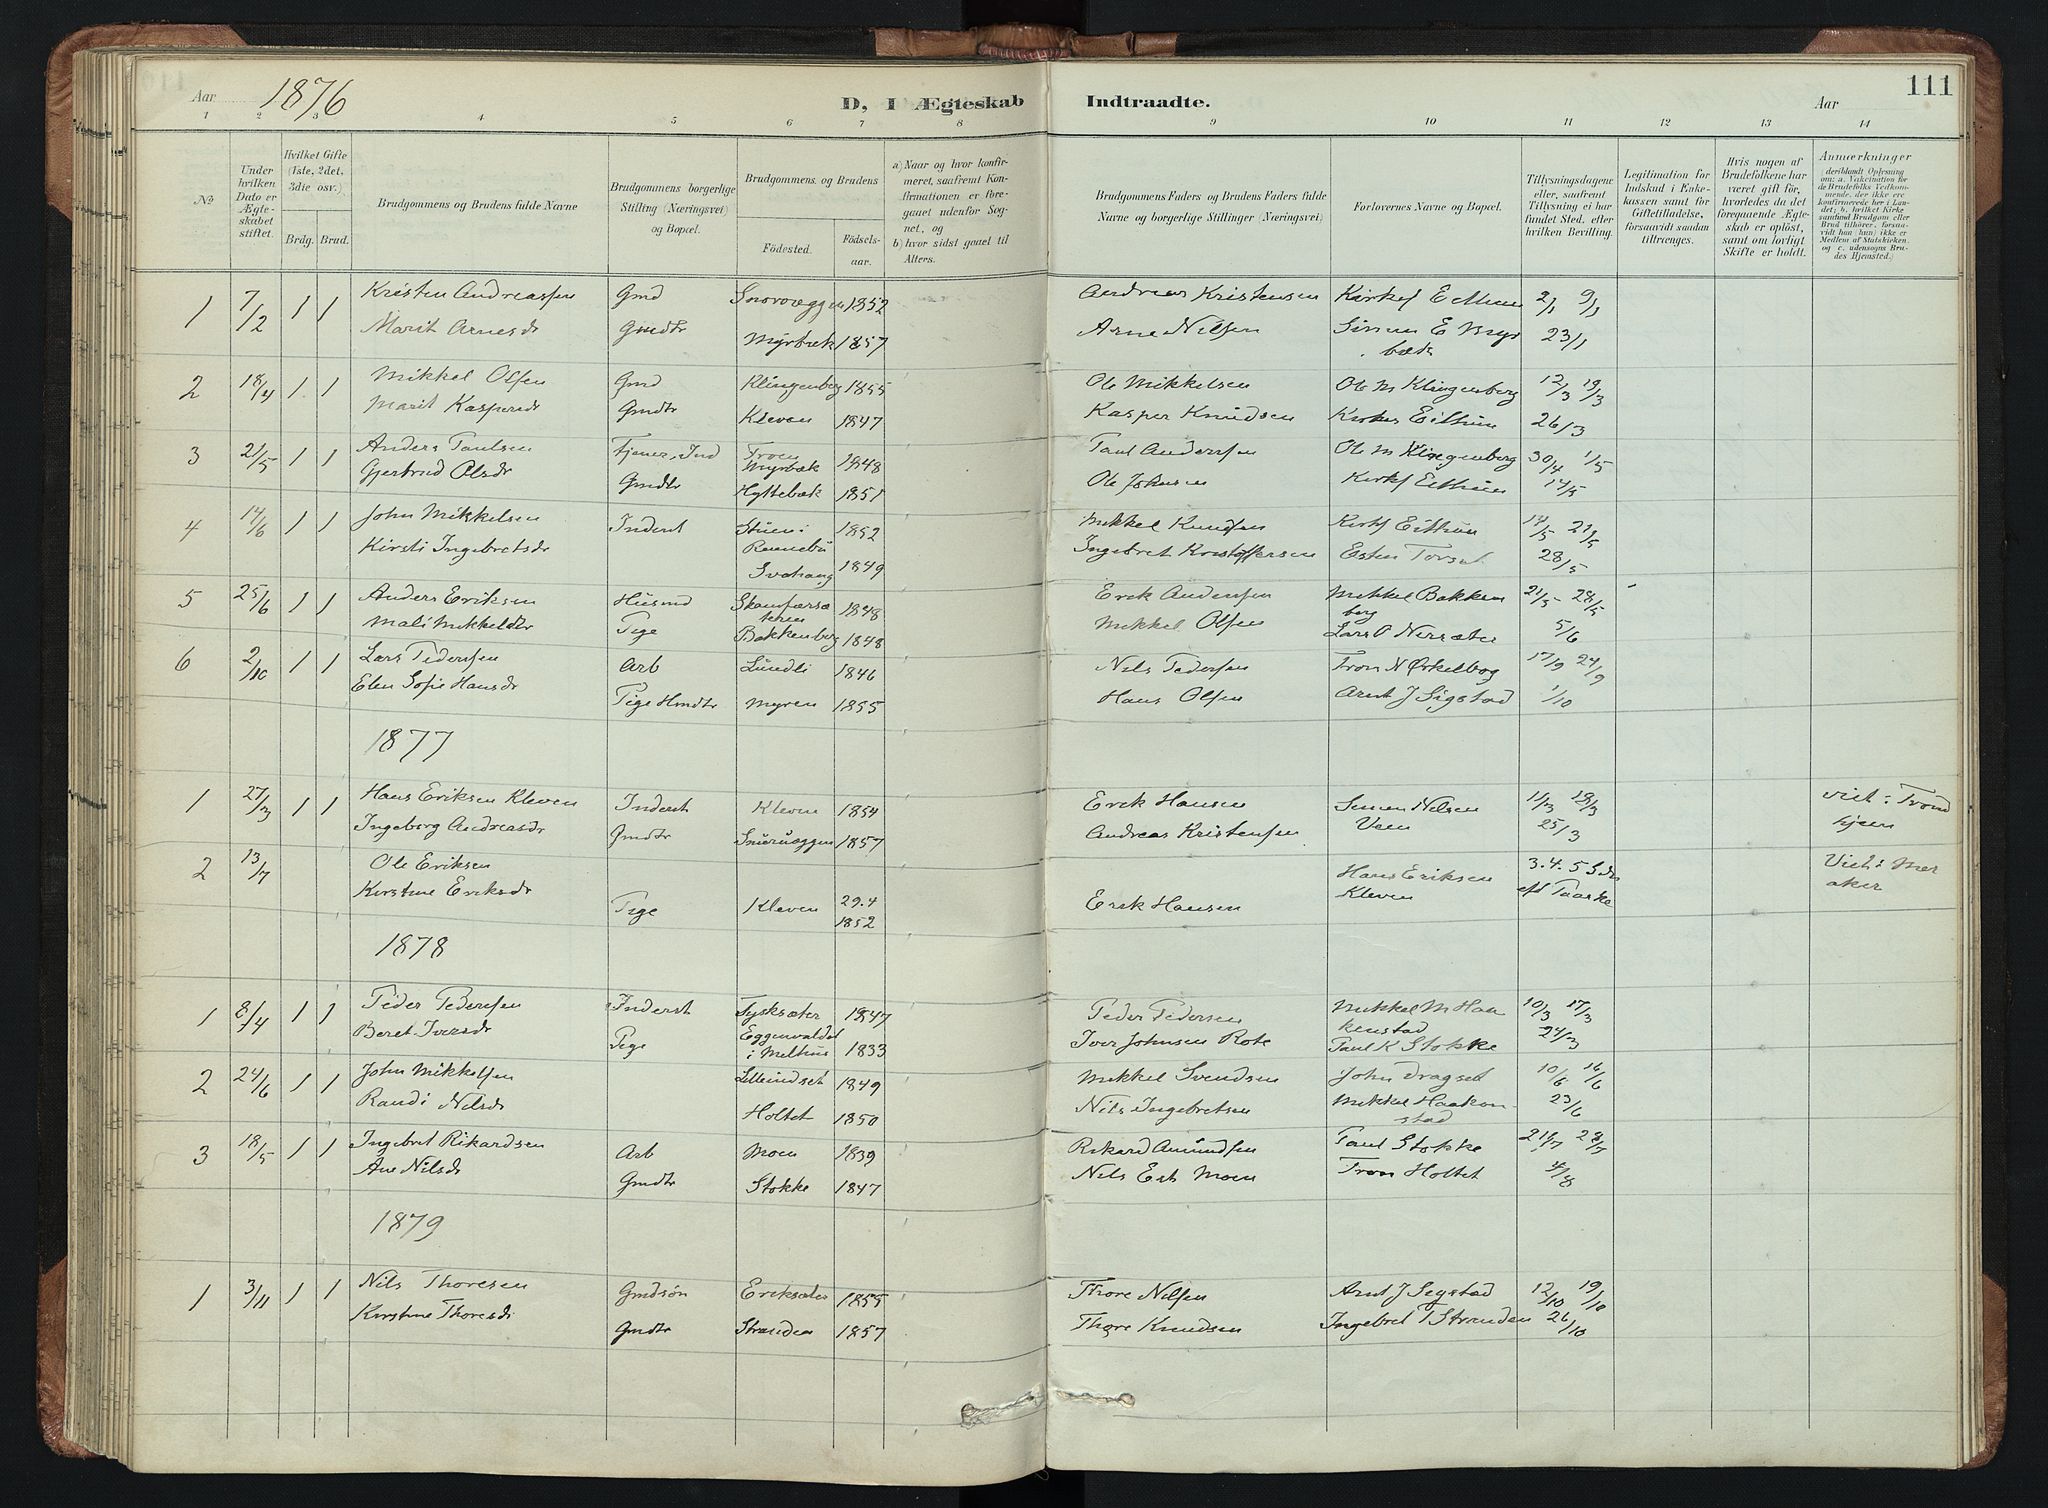 Aar 1876
D, I Ægteskab Indtraadte.
Aar 111
1 2 3 4 5 6 7 8 9 10 11 12 13 14
No
Under hvilken Dato er Ægteskabet stiftet.
Hvilket Gifte (1ste, 2det, 3die osv.)
Brdg. Brud.
Brudgommens og Brudens fulde Navne
Brudgommens borgerlige Stilling (Næringsvei) og Bopæl.
Brudgommens og Brudens
Fødested. Fødselsaar.
a) Naar og hvor konfirmeret, saafremt Konfirmationen er foregaaet udenfor Sognet, og
b) hvor sidst gaaet til Alters.
Brudgommens Faders og Brudens Faders fulde Navne og borgerlige Stillinger (Næringsvei)
Forlovernes Navne og Bopæl.
Tillysningsdagene eller, saafremt Tillysning ei har fundet Sted, efter hvilken Bevilling.
Legitimation for Indskud i Enkekassen samt for Giftetilladelse, forsaavidt saadan tiltrænges.
Hvis nogen af Brudefolkene har været gift før, hvorledes da det foregaaende Ægteskab er opløst, samt om lovligt Skifte er holdt.
Anmærkninger (deriblandt Oplysning om: a. Vakcination for de Brudefolks Vedkommende, der ikke ere konfirmerede her i Landet; b. hvilket Kirkesamfund Brudgom eller Brud tilhører, forsaavidt han (hun) ikke er Medlem af Statskirken, og c. udensogns Brudes Hjemsted.)
1 7/2 1 1 Kristen Andreassen Gmd 1852 Andreas Kristensen Kirkes Eithun 2/1 9/1
Marit Arnesdr Gmdtr Myrbæk 1857 Arne Nilsen Simon E Myrbæk 23/1
2 18/4 1 1 Mikkel Olsen Gmd Klingenberg 1855 Ole Mikkelsen Ole M Klingenberg 12/3 19/3
Marit Kaspersdr Gmdtr Kleven 1847 Kasper Knudsen Kirkes Eithun 26/3
3 21/5 1 1 Anders Paulsen Tjener, Ind Troen Myrbæk 1848 Paul Andersen Ole M Klingenberg 30/4 1/5
Gjertrud Olsdr Gmdtr Hyttebæk 1851 Ole Johnsen Kirks Eithun 14/5
4 14/6 1 1 John Mikkelsen Inderst Stuen i Rennebu 1852 Mikkel Knudsen Kirks Eithun 14/5 21/5
Kirsti Ingebretsdr Svahaug 1849 Ingebret Kristoffersen Esten Torset 28/5
5 25/6 1 1 Anders Eriksen Husmd 1848 Erik Andersen Mikkel Bakkenberg 21/5 28/5
Mali Mikkelsdtr Pige Bakkenberg 1848 Mikkel Olsen Lars O Nersæter 5/6
6 2/10 1 1 Lars Pedersen Arb Lundli 1846 Nils Pedersen Tron N Ørkelbog 17/9 24/9
Elen Sofie Hansdr Pige Hmdtr Myren 1855 Hans Olsen Arnt J Sigstad 1/10
1877
1 27/3 1 1 Hans Eriksen Kleven Inderst Kleven 1854 Erik Hansen Simen Nilsen Veen 11/3 18/3 viet: Trondhjem
Ingeborg Andreasdr Gmdtr 1857 Andreas Kristensen 25/3
2 13/7 Ole Eriksen Hans Eriksen Kleven 3.4.5 S.dr eft Paaske Viet: Meraker
Kirstine Eriksdr Pige Kleven 29.4 1852 Erik Hansen
1878
1 8/4 1 1 Peder Pedersen Inderst Sysksæter 1847 Peder Pedersen Mikkel M Haakenstad 10/3 17/3
Beret Iversdr Pige i Melhus 1833 Iver Johnsen Rote Paul K Stokke 24/3
2 24/6 1 1 John Mikkelsen Lilleindset 1849 Mikkel Svendsen John Dragset 10/6 16/6
Randi Nilsdr Holtet 1850 Nils Ingebretsen Mikkel Haakonstad 23/6
3 18/5 1 1 Ingebret Rikardsen Arb Moen 1839 Rikard Amundsen Paul Stokke 21/7 28/7
Ane Nilsdr Gmdtr Stokke 1847 Nils Est Moen Tron Holtet 4/8
1879
1 3/11 1 1 Nils Thoresen Gmdsøn Eriksæter 1855 Thore Nilsen Arnt J Segstad 12/10 19/10
Kirstine Thoresdr Gmdtr Stranden 1857 Thore Knudsen Ingebret T Stranden 26/10